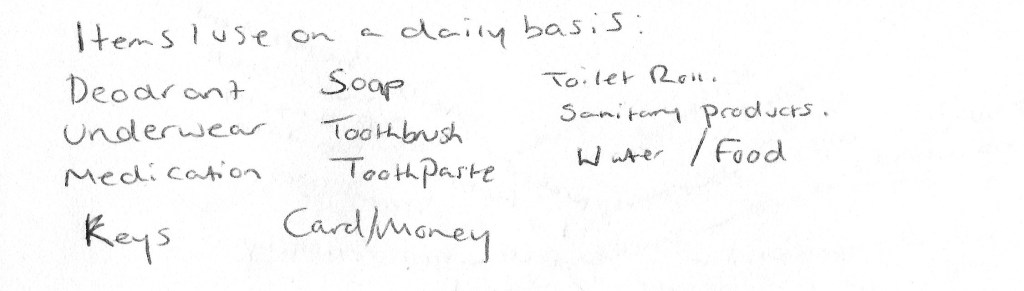 Items I use on a daily basis:
Deodrant Soap Toilet Roll.
Underwear Toothbrush Sanitary products.
Medication ToothPaste Water / Food
Keys Card/Money